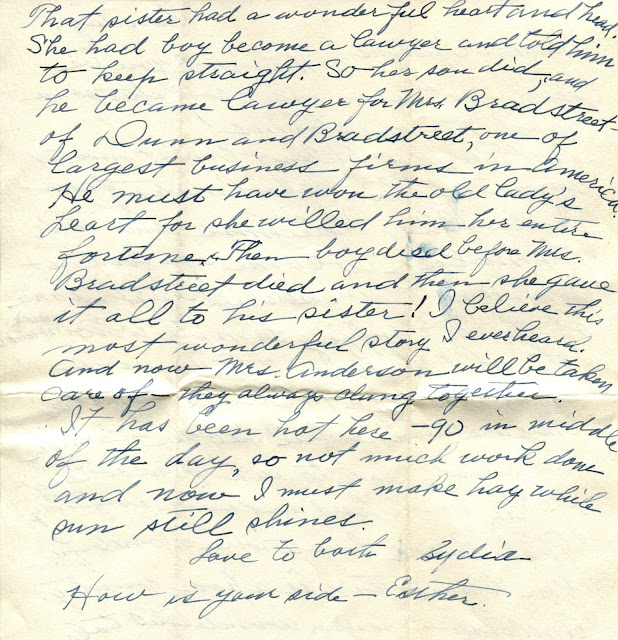 That sister had a wonderful heart and head.
She had boy become a lawyer and told him
to keep straight. So her son did, and
he became lawyer for Mrs. Bradstreet-
of Dunn and Bradstreet, one of
largest business firms in America.
He must have won the old lady's
heart for she willed him her entire
fortune. Then boy died before Mrs.
Bradstreet died and then she gave
it all to his sister! I believe this
most wonderful story I ever heard.
And now Mrs. Anderson will be taken
care of - they always clung together.
It has been hot here - 90 in middle
of the day, so not much work done
and now I must make hay while
sun still shines.
Love to both Lydia
How is your side - Esther.